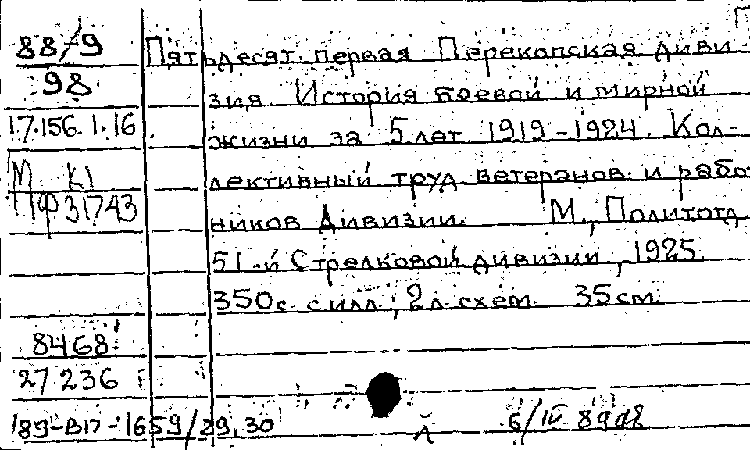 88/9
98
17.156.1.16
М К1
МФ31743
8468
27 236
Пятьдесят первая Перекопская диви
зия. История боевой и мирной
жизни за 5 лет 1919-1924. Кол-
лективный труд ветеранов и работ
ников дивизии. М., Политотд
51-й Стрелковой дивизии, 1925
350с. с илл; 2л схем 35см.
189-В17-1659/29,30
6/IV 89